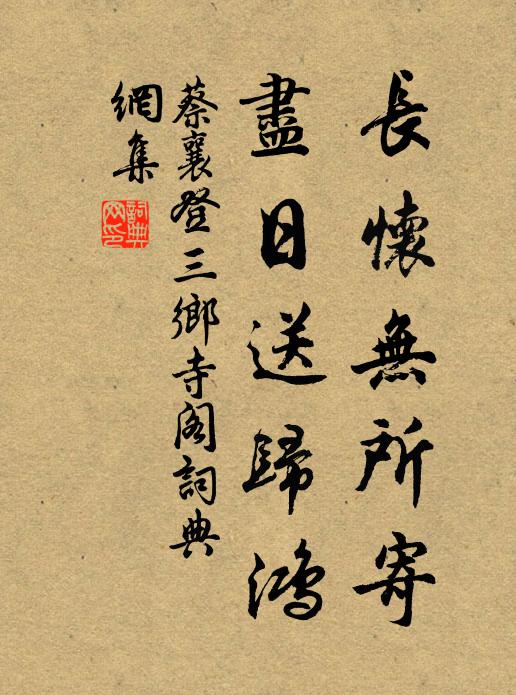 長懷無所寄
盡日送歸鴻
蔡襄登三鄉寺閣詞典
網集
詞典
网印